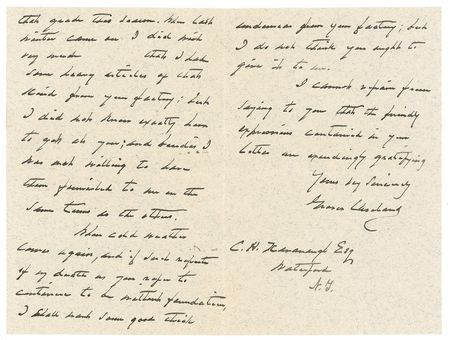 that grade this season. When last
winter came on I did wish
very much that I had
some heavy articles of that
kind from your factory; but
I did not know exactly how
to get at you; and besides I
was not willing to have
them furnished to me on the
same terms as the others.
When cold weather
comes again, and if such reports
of my health as you refer to
continue to be without foundation,
I shall want some good thick
underwear from your factory; but
I do not think you ought to
give it to me.
I cannot refrain from
saying to you that the friendly
expressions contained in your
letter are exceedingly gratifying
Yours very sincerely
Grover Cleveland
C. H. Kavanaugh Esq
Waterford
N.Y.